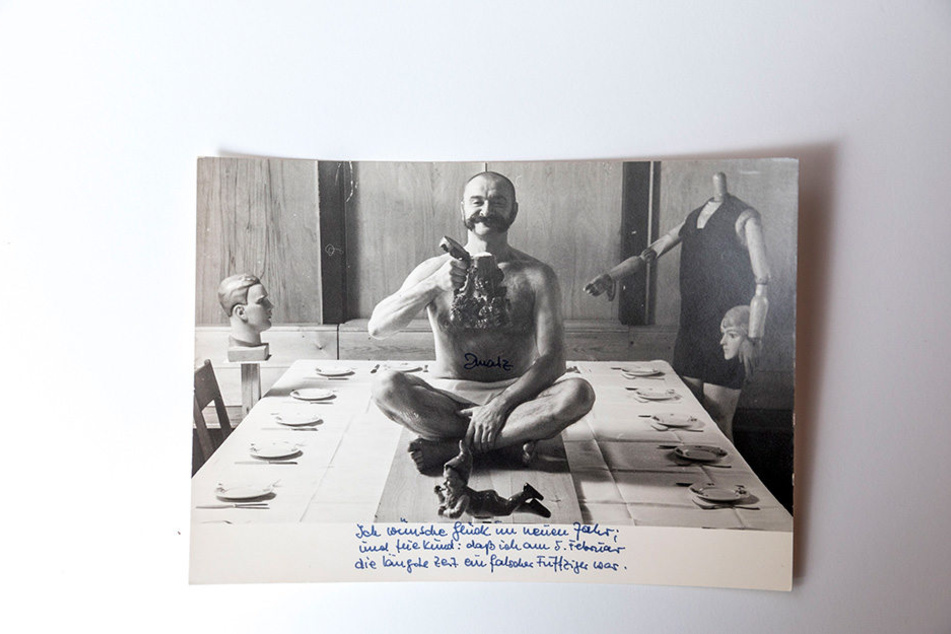 Ich wünsche Glück im neuen Jahr;
und tue kund: daß ich am 5. Februar
die längste Zeit ein falscher Fuffziger war.